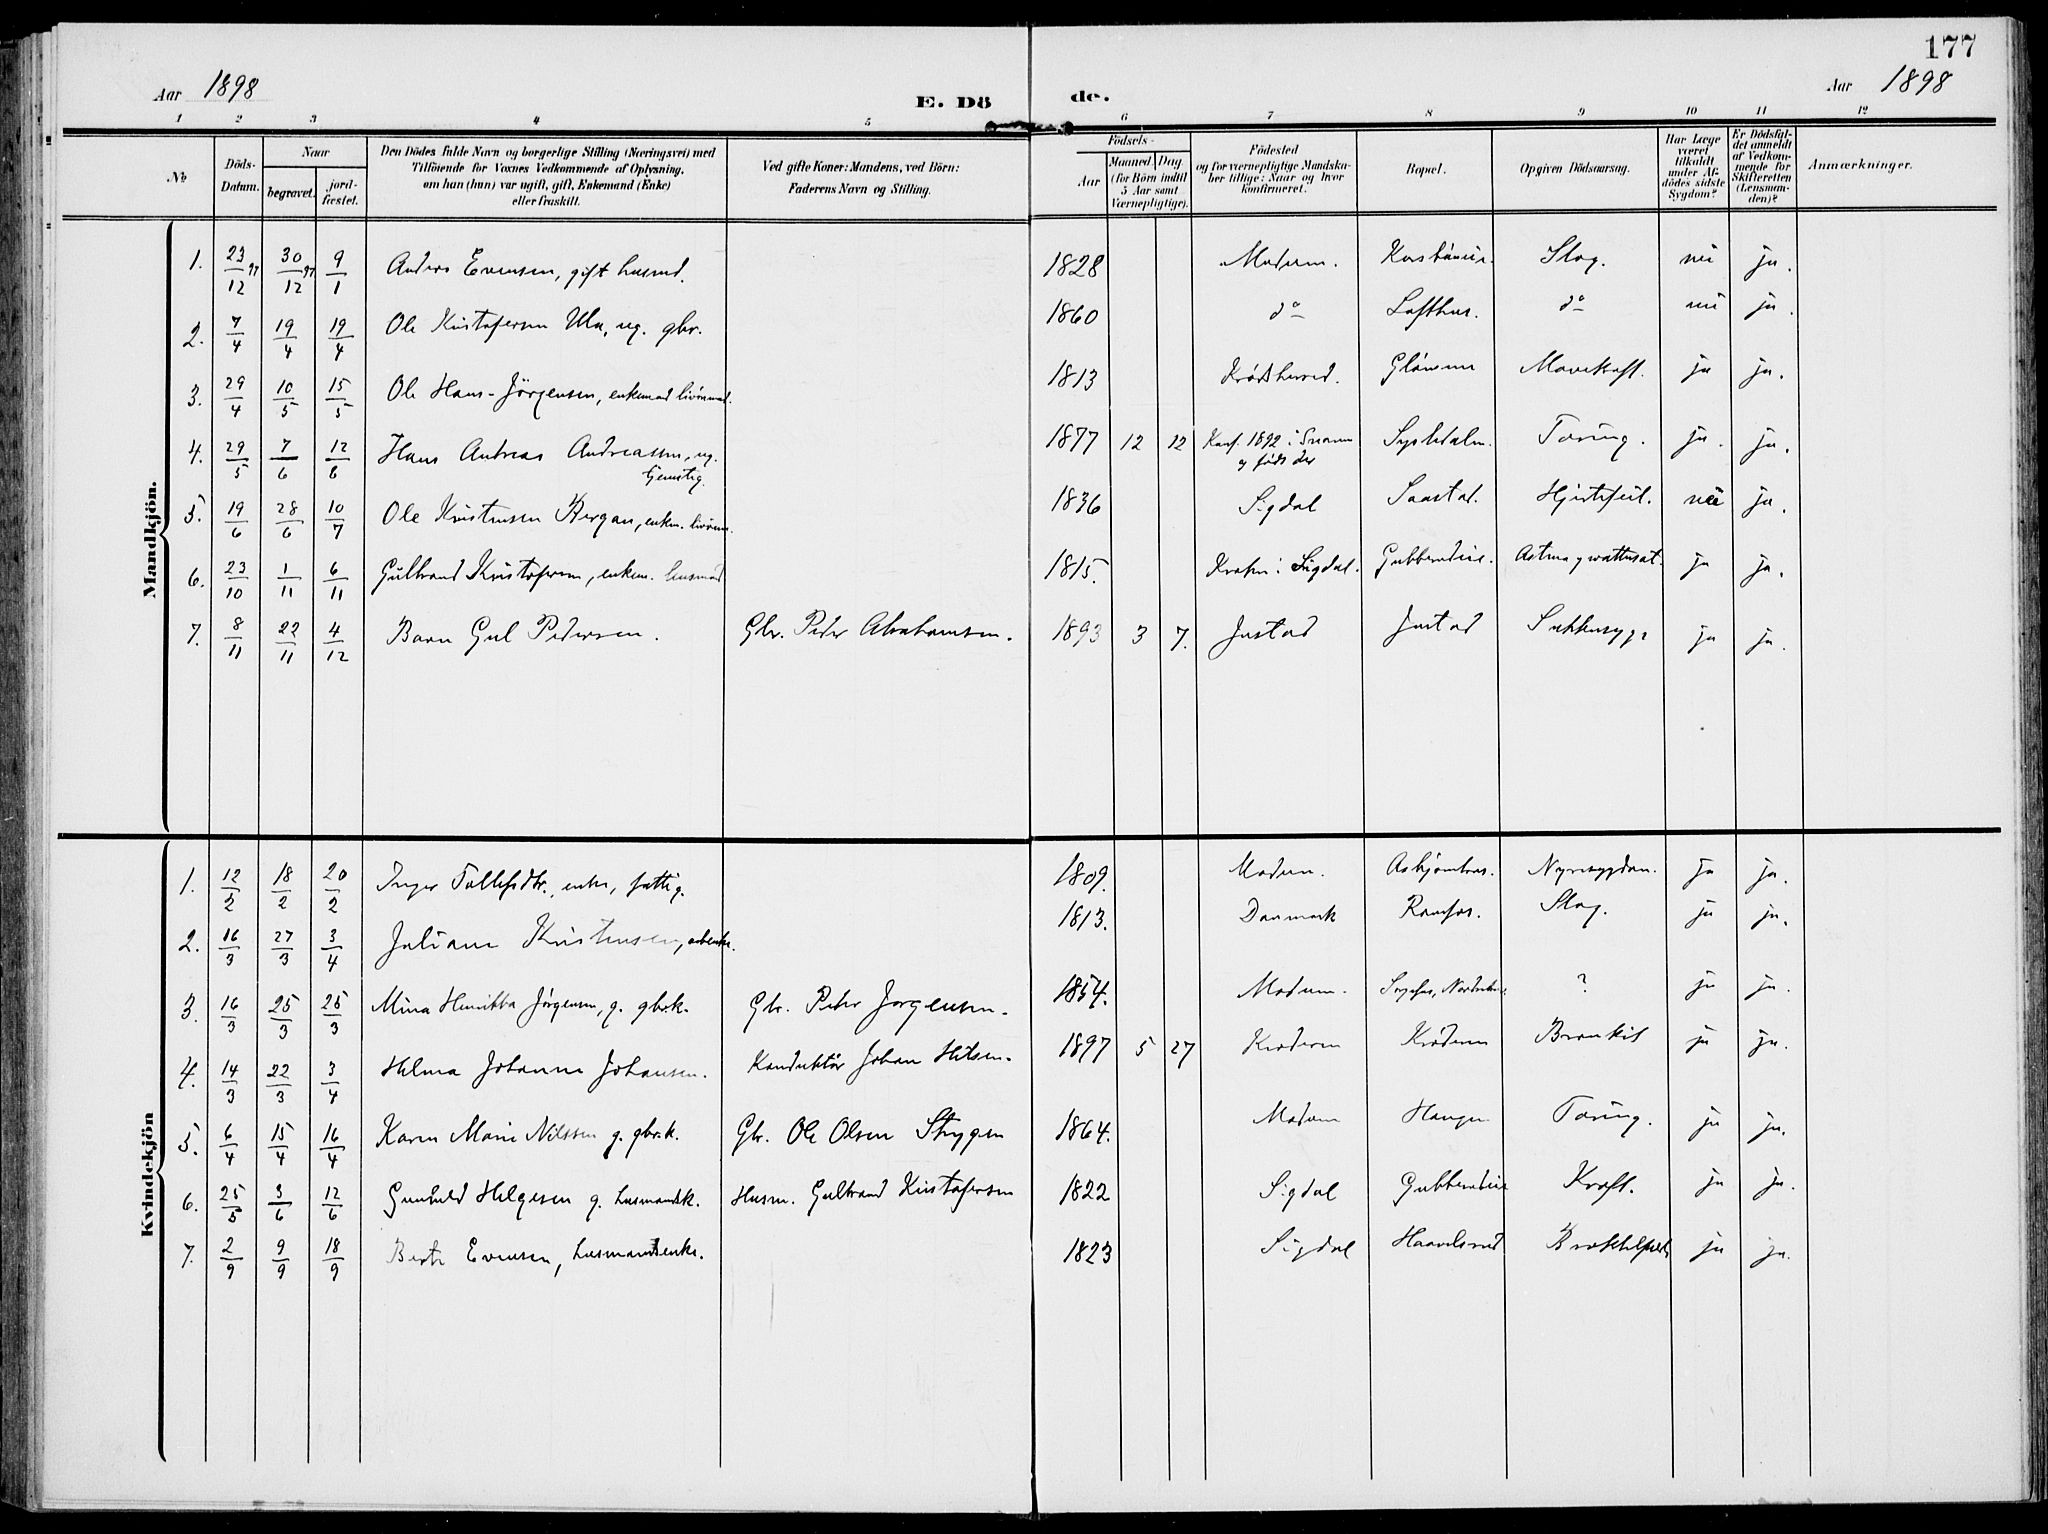 177
Aar 1898
E. Dö de.
Aar 1898
1 2 3 4 5 6 7 8 9 10 11 12
No
Döds-Datum.
Naar
begravet.
jord-fæstet.
Den Dödes fulde Navn og borgerlige Stilling (Næringsvei) med
Tilföiende for Voxnes Vedkommende af Oplysning,
om han (hun) var ugift, gift, Enkemand (Enke)
eller fraskilt.
Ved gifte Koner: Mandens, ved Börn:
Faderens Navn og Stilling.
Födsels-
Aar
Maaned. Dag
(for Börn indtil
5 Aar samt
Værnepligtige).
Födested
og for værnepligtige Mandska-
ber tillige: Naar og hvor
konfirmeret.
Bopæl.
Opgiven Dödsaarsag.
Har Læge
været
tilkaldt
under Af-
dödes sidste
Sygdom?
Er Dödsfal-
det anmeldt
af Vedkom-
mende for
Skifteretten
(Lensman-
den)?
Anmærkninger.
Mandkjön.
1. 23/12 97 30/12 97 9/1 Anders Evensen, gift husmd. 1828 Modum. Slag. nei ja.
2. 7/4 19/4 19/4 Ole Kristofersen Ula, ug. gbr. 1860 do Lofthus. do nei ja.
3. 29/4 10/5 15/5 Ole Hans-Jörgensen, enkemand 1813 Krödsherred. Mavekræft. ja ja.
4. 29/5 7/6 12/6 Hans Andreas Andreassen, ug. 1877 12 12 Konf. 1892 i Snarum Sysledalen. Tæring. ja. ja.
og född der
5. 19/6 28/6 10/7 Ole Kristensen Bergan, enkem. 1836 Sigdal Saastad. Hjertefeil. nei ja.
6. 23/10 1/11 6/11 Gulbrand Kristofersen, enkem. husmand 1815. i Sigdal. Gubberudeie. Astma og wattersot. ja ja.
7. 8/11 22/11 4/12 Barn Gul Pedersen. Gbr. Peder Abrahamsen. 1893 3 7. Justad Justad Sukkersyge ja ja.
Kvindekjön
1. 12/2 18/2 20/2 Inger Tollefsdtr. enke, fattig. 1809. Modum. Nyresygdom. ja ja.
2. 16/3 27/3 3/4 Juliane Kristensen, 1813. Danmark Ramfos. Slag. ja ja.
3. 16/3 25/3 25/3 Mina Henrikka Jörgensen, g. gbr.k. Gbr. Peder Jorgensen. 1854. Modum. ? ja ja.
4. 14/3 22/3 3/4 Helma Johanne Johansen. Konduktör Johan Hilsen. 1897 5 27 Kröderen Kröderen Bronkit ja ja.
5. 6/4 15/4 16/4 Karen Marie Nilssen g. gbr.k. Gbr. Ole Olsen Strygen 1864. Modum Haugen Tæring. ja ja.
6. 25/5 3/6 12/6 Gunhild Helgesen g. husmandsk. Husm. Gulbrand Kristofersen 1822 Sigdal Gubberudeie Kræft. ja ja.
7. 2/9 9/9 18/9 Berte Evensen, husmandsenke. 1823 Sigdal Haavelsrud ja ja.